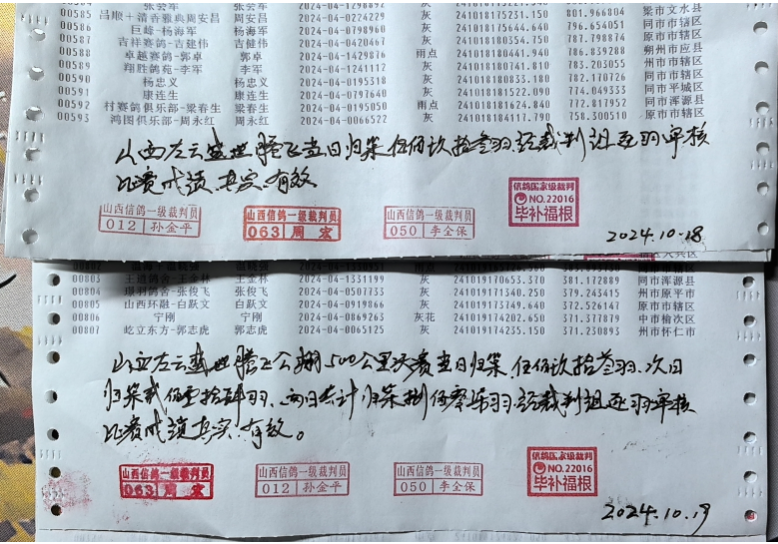 张会军 张会军 2024-04-1298892 灰
00585 昌顺+清香雅典周安昌 周安昌 2024-04-0224229 灰 241018175231.150 801.966804 梁市文水县
00586 巨峰-杨海军 杨海军 2024-04-0798960 灰 241018175644.640 796.654051 同市市辖区
00587 吉祥赛鸽-吉建伟 吉健伟 2024-04-0420467 灰 241018180354.750 787.798874 原市市辖区
00588 卓越赛鸽-郭卓 郭卓 2024-04-1429876 雨点 241018180441.940 786.839288 朔州市应县
00589 翔胜鸽苑-李军 李军 2024-04-1241112 灰 241018180741.810 783.203055 州市市辖区
00590 杨忠义 杨忠义 2024-04-0195318 灰 241018180833.180 782.170726 同市市辖区
00591 康连生 康连生 2024-04-0797640 灰 241018181522.090 774.049333 同市平城区
00592 村赛鸽俱乐部-梁春生 梁春生 2024-04-0195050 雨点 241018181624.840 772.817952 同市浑源县
00593 鸿图俱乐部-周永红 周永红 2024-04-0066522 灰 241018184117.790 758.300510 原市市辖区
山西左云盛世腾飞当日归巢伍佰玖拾叁羽.经裁判组逐羽审核
比赛成绩.真实.有效
山西信鸽一级裁判员 012 孙金平
山西信鸽一级裁判员 063 周宏
山西信鸽一级裁判员 050 李全保
信鸽国家级裁判 NO.22016 毕补福根
2024.10.18
00803 王金林 2024-04-1331199 灰 241019170653.370 381.172889 同市浑源县
00804 张俊飞 2024-04-0507733 灰 241019171340.250 379.243415 州市原平市
00805 山西环融-白跃文 白跃文 2024-04-0919866 灰 241019173749.640 372.526147 原市市辖区
00806 宁刚 宁刚 2024-04-0869263 灰花 241019174202.650 371.377879 中市榆次区
00807 屹立东方-郭志虎 郭志虎 2024-04-0065125 灰 241019174235.150 371.230893 州市怀仁市
山西左云盛世腾飞公棚500公里决赛当日归巢.伍佰玖拾叁羽.次日
归巢贰佰壹拾肆羽.两日共计归巢捌佰零柒羽.经裁判组逐羽审核
比赛成绩真实.有效。
山西信鸽一级裁判员 063 周宏
山西信鸽一级裁判员 012 孙金平
山西信鸽一级裁判员 050 李全保
信鸽国家级裁判 NO.22016 毕补福根
2024.10.19